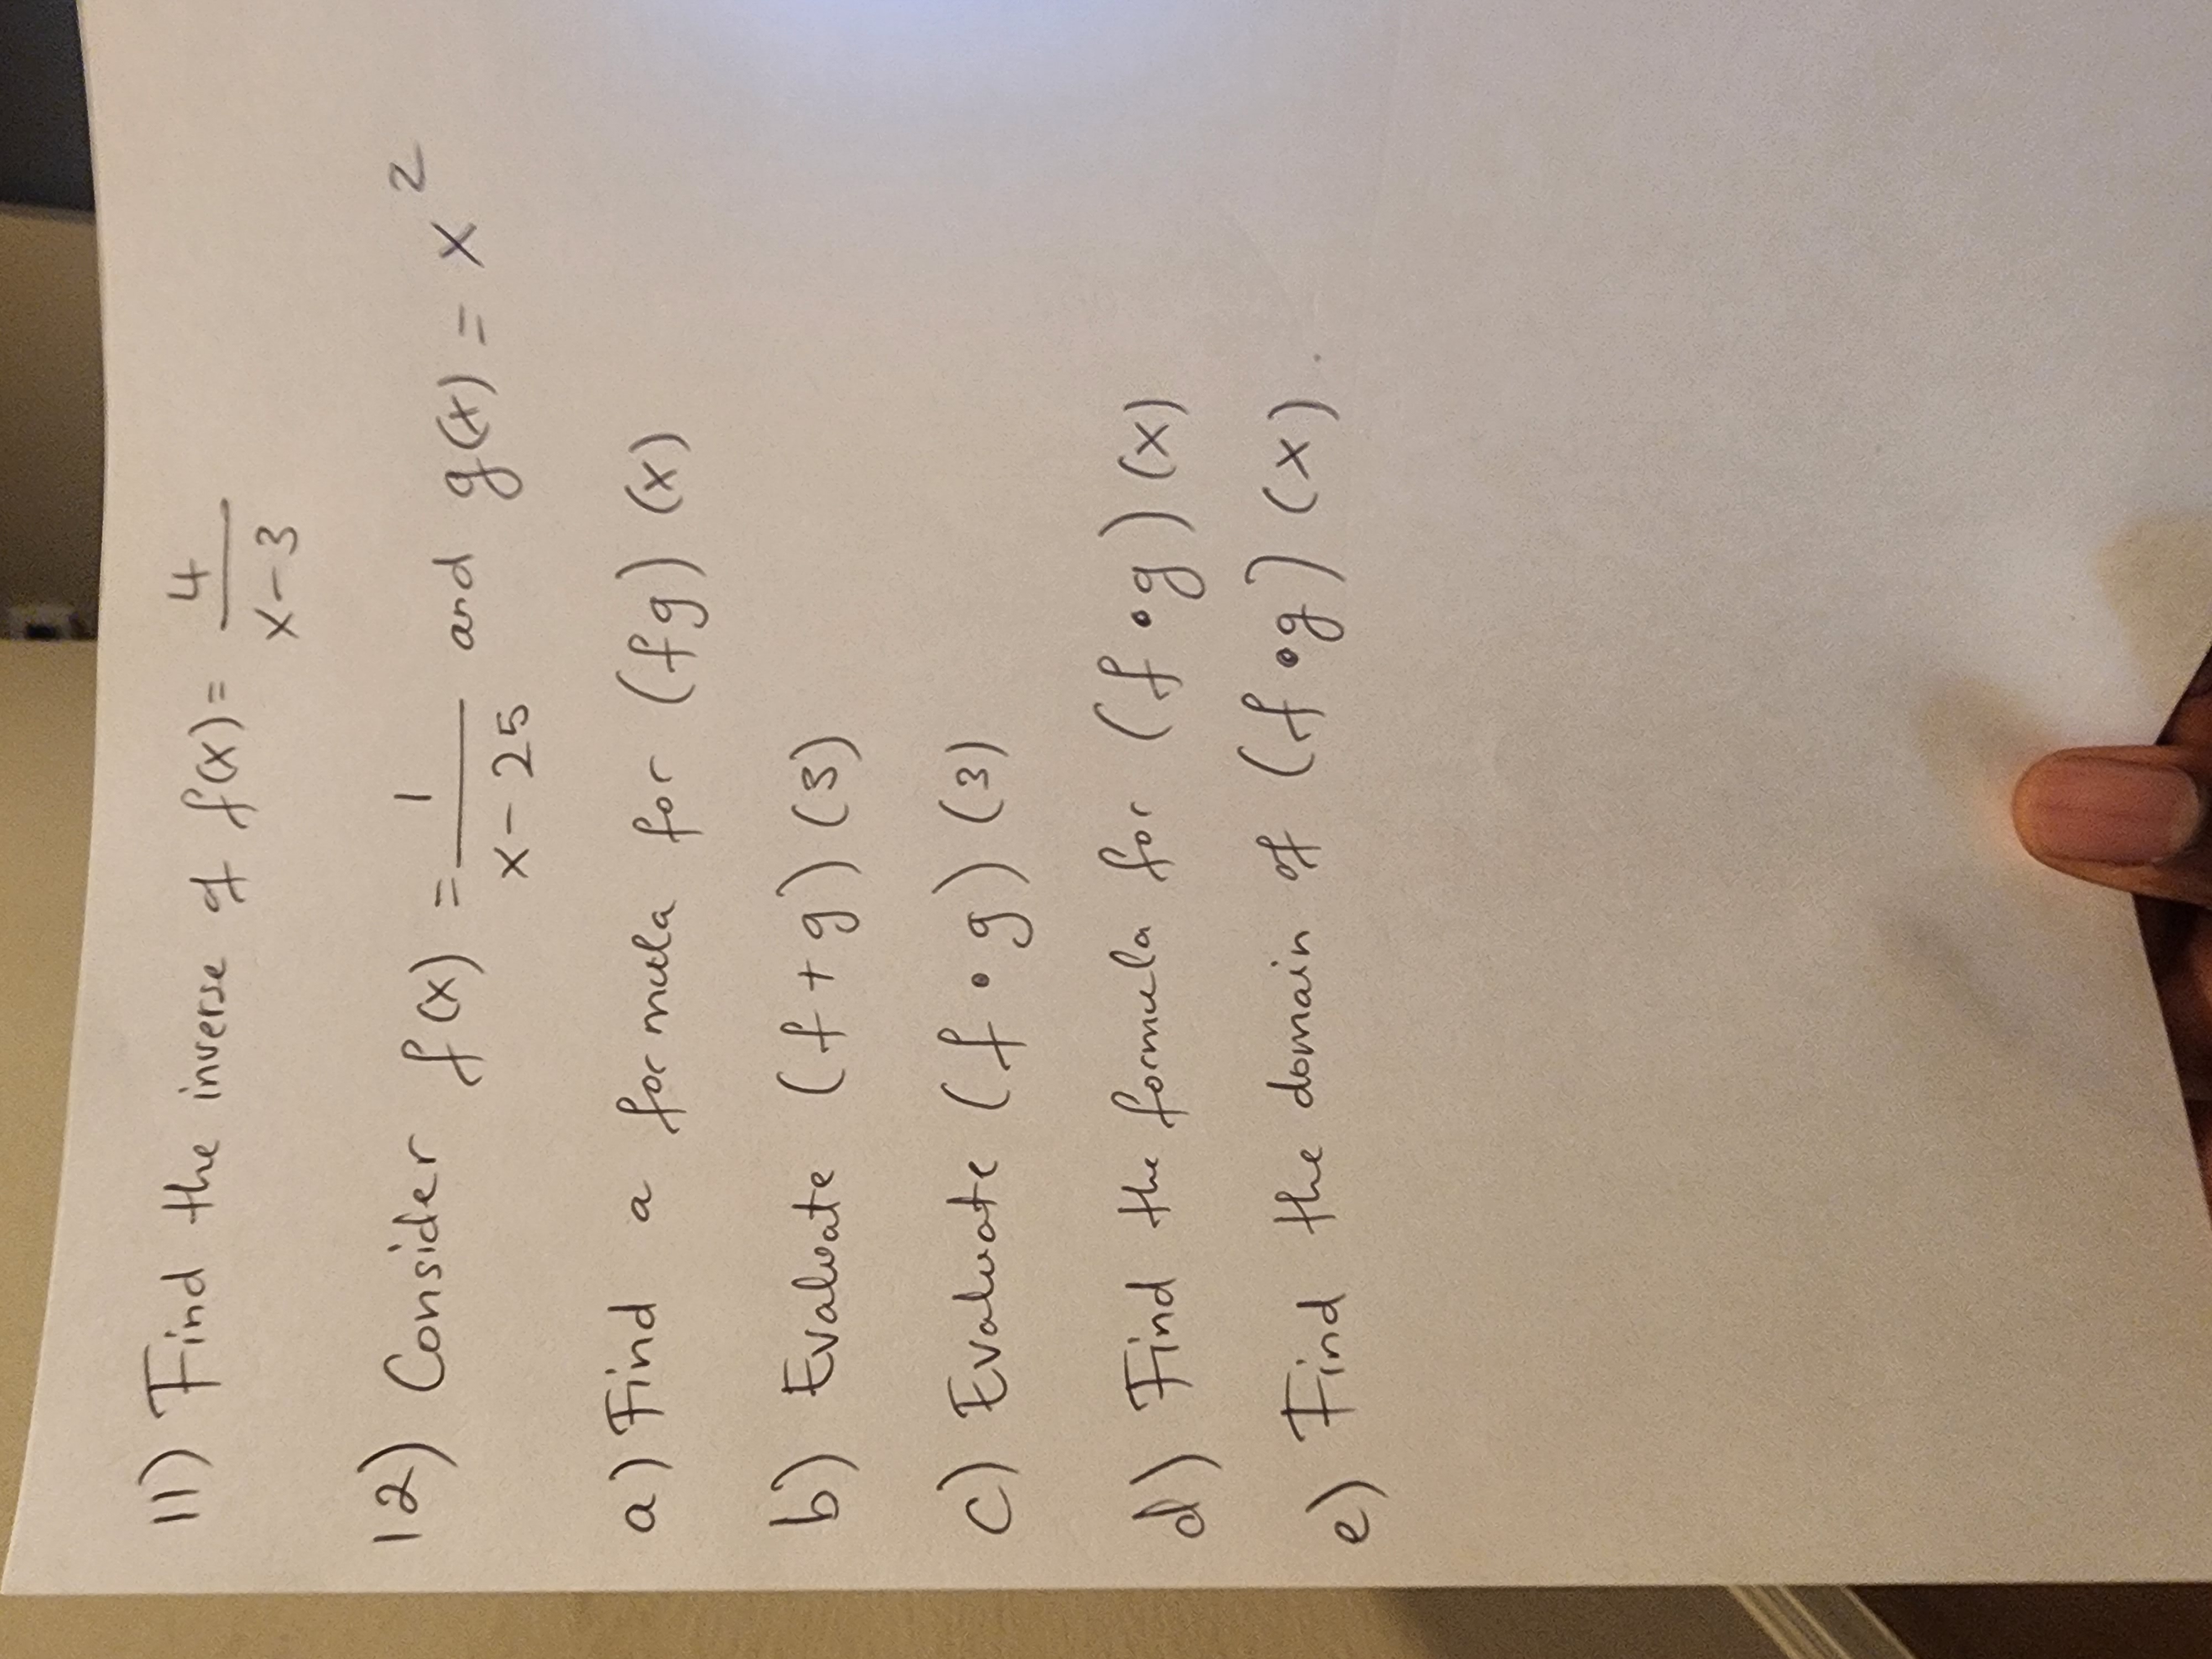 11) Find the inverse of f(x) = 4/(x-3)
12) Consider f(x) = 1/(x-25) and g(x) = x²
a) Find a formula for (fg)(x)
b) Evaluate (f+g)(3)
c) Evaluate (f∘g)(3)
d) Find the formula for (f∘g)(x)
e) Find the domain of (f∘g)(x).